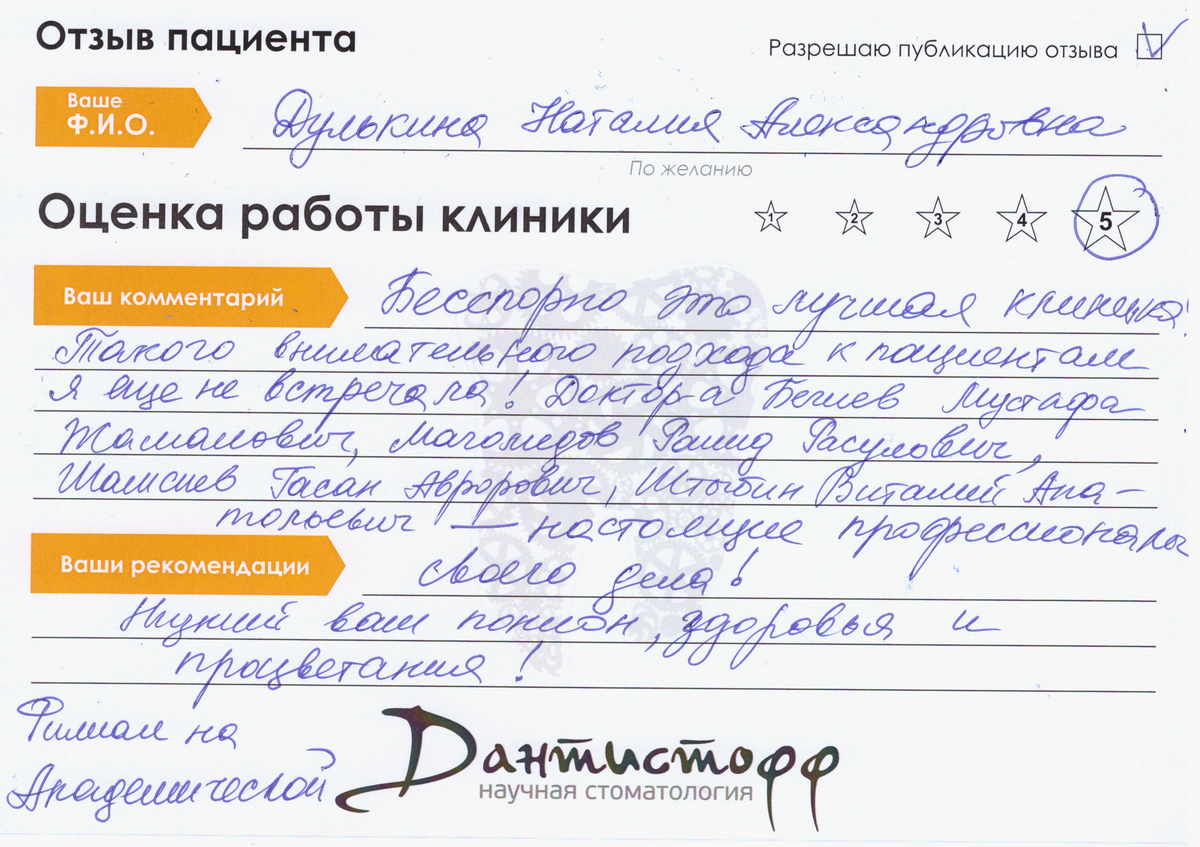 Отзыв пациента
Разрешаю публикацию отзыва
Ваше
Ф.И.О.
Дулькина Наталия Александровна
По желанию
Оценка работы клиники
1 2 3 4 5
Ваш комментарий
Бесспорно это лучшая клиника!
Такого внимательного подхода к пациентам
я еще не встречала! Доктор-а Бегиев Мустафа
Жамалович, Магомедов Рашид Расулович,
Шамсиев Гасан Аврорович, Штыбин Виталий Ана-
тольевич — настоящие профессионалы
Ваши рекомендации
своего дела!
Низкий вам поклон, здоровья и
процветания!
Филиал на
Академической
Дантистофф
научная стоматология